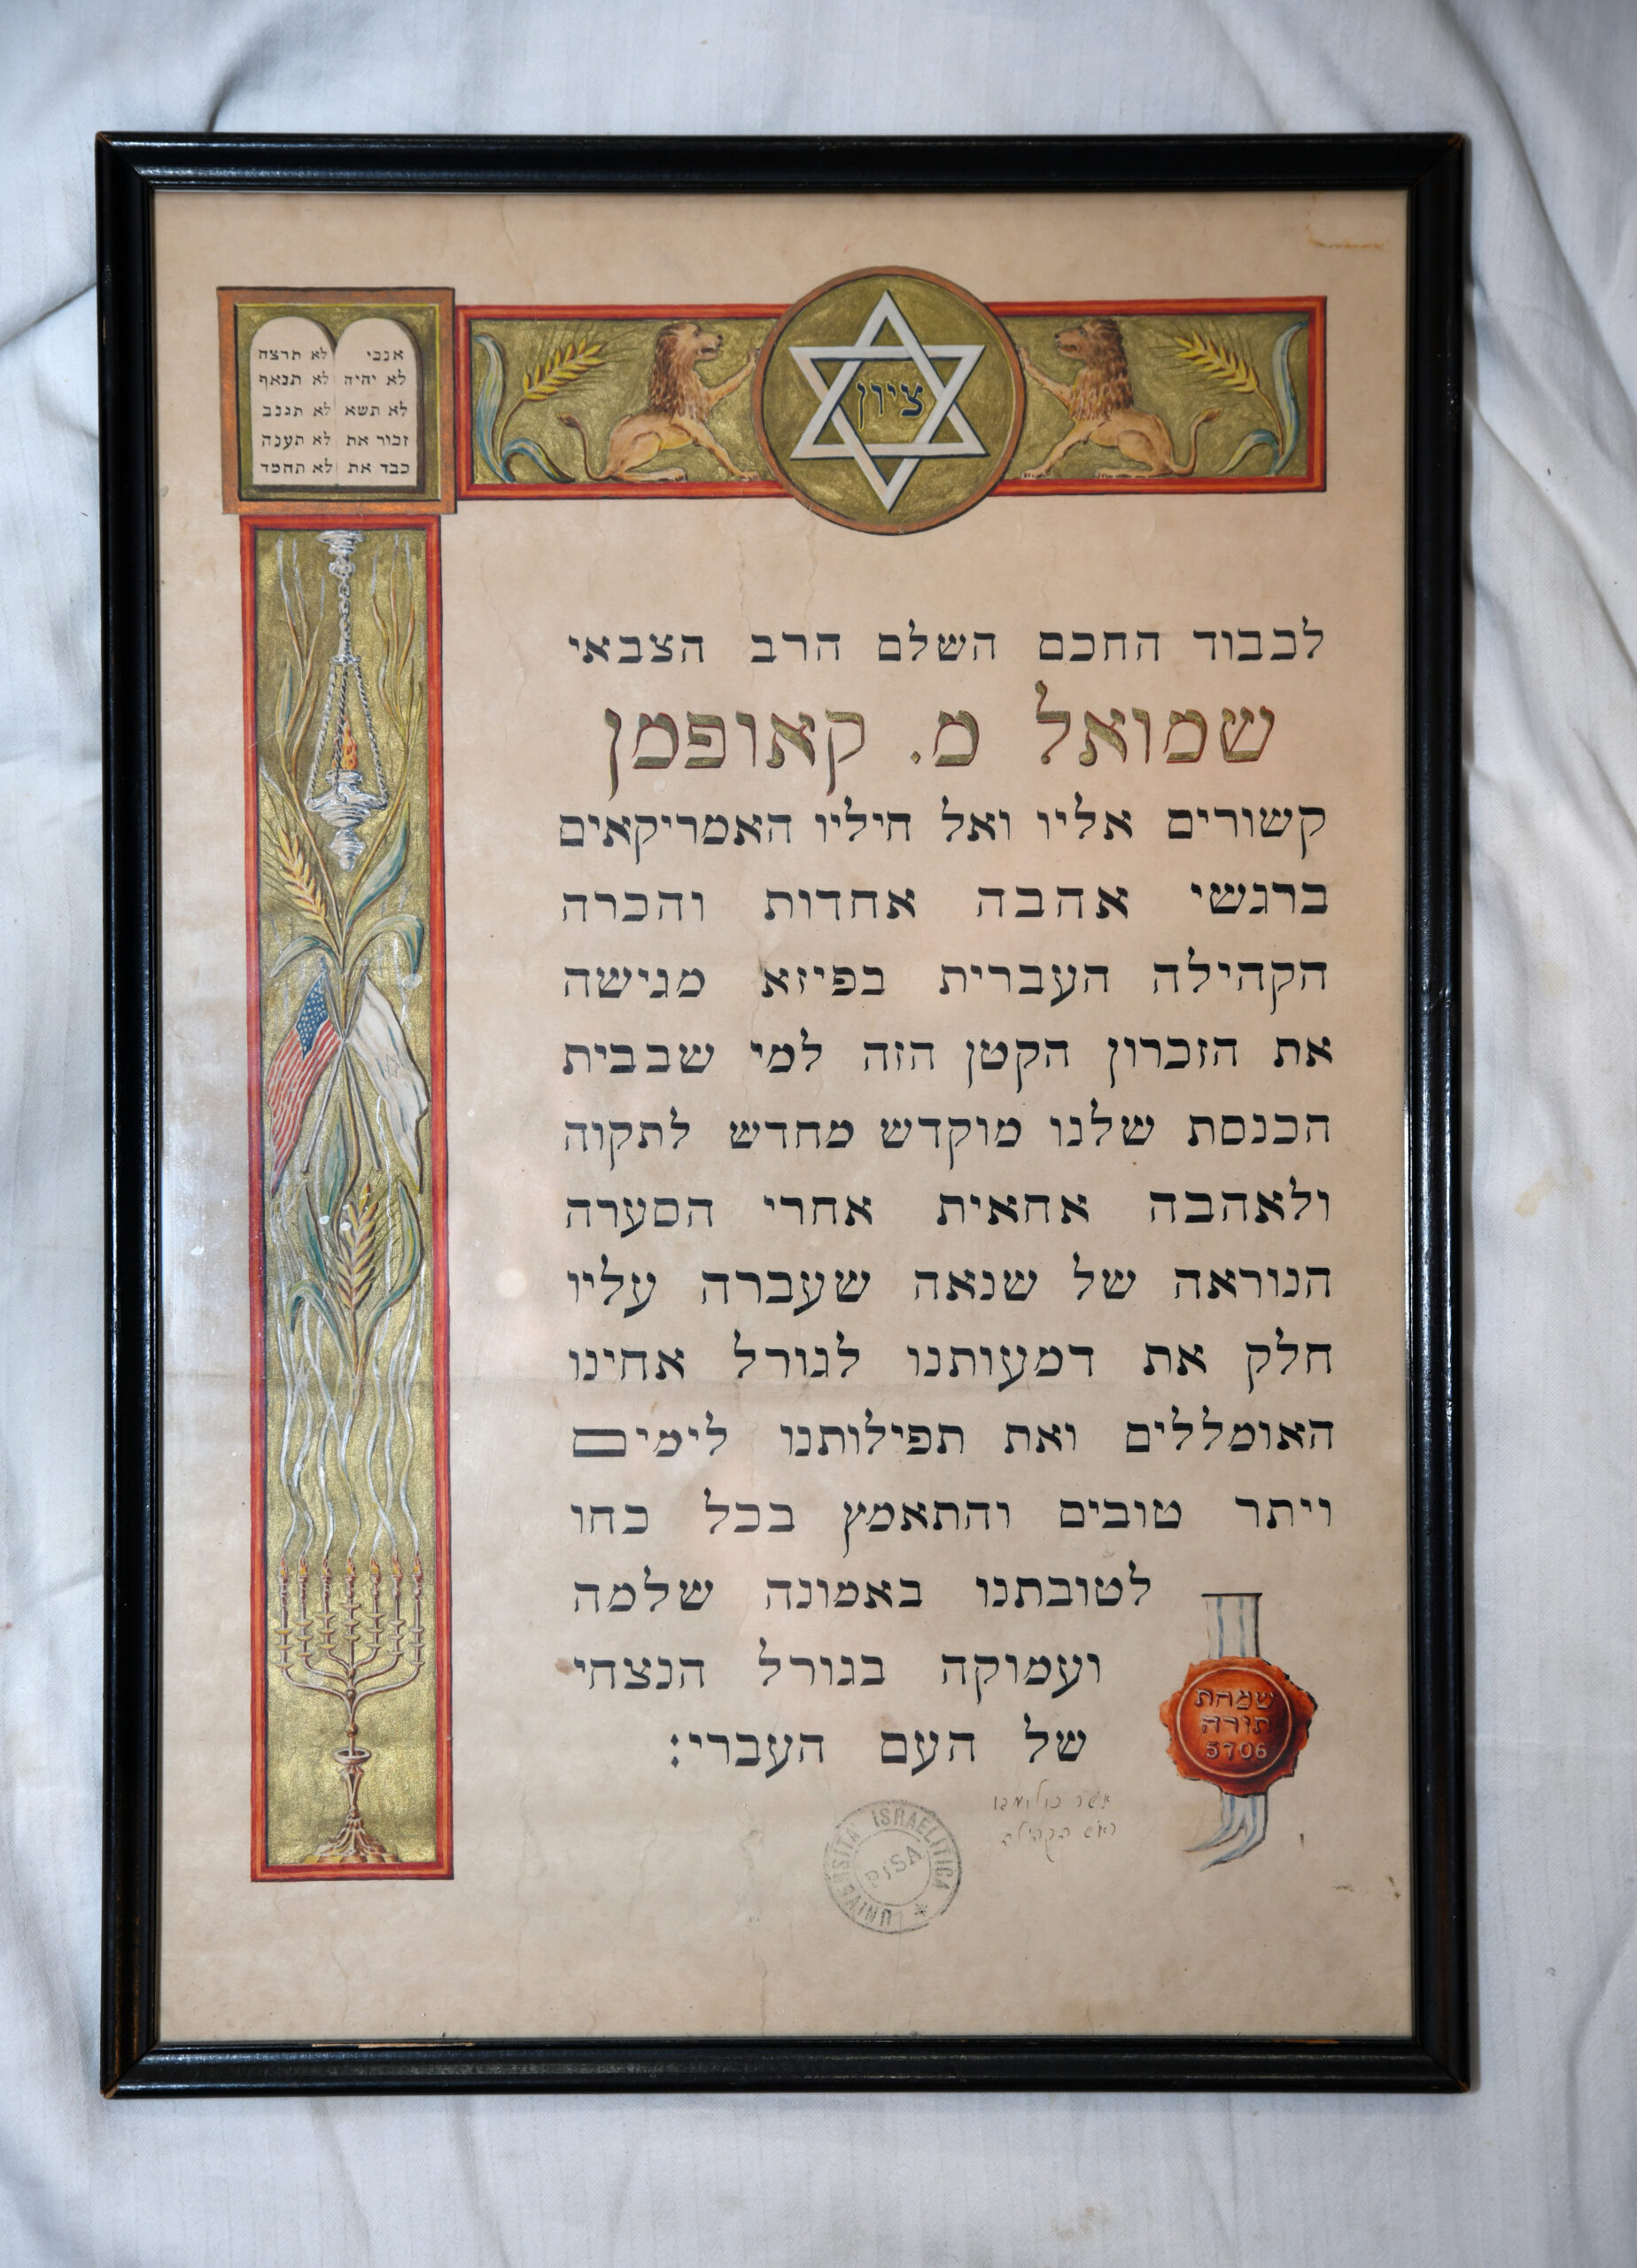 אנכי לא תרצח
לא יהיה לא תנאף
לא תשא לא תגנב
זכור את לא תענה
כבד את לא תחמד
ציון
לכבוד החכם השלם הרב הצבאי
שמואל מ. קאופמן
קשורים אליו ואל חיליו האמריקאים
ברגשי אהבה אחדות והכרה
הקהילה העברית בפיזא מגישה
את הזכרון הקטן הזה למי שבבית
הכנסת שלנו מוקדש מחדש לתקוה
ולאהבה אחאית אחרי הסערה
הנוראה של שנאה שעברה עליו
חלק את דמעותנו לגורל אחינו
האומללים ואת תפילותנו לימים
ויתר טובים והתאמץ בכל כחו
לטובתנו באמונה שלמה
ועמוקה בגורל הנצחי
של העם העברי:
שמחת
תורה
5706
ראש הקהילה
UNIVERSITÀ ISRAELITICA *
PISA